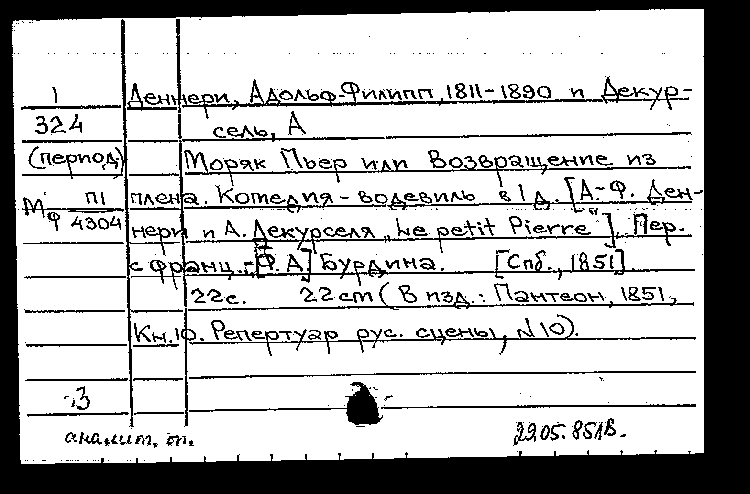 1 Деннери, Адольф-Филипп, 1811-1890 и Декур-
324 сель, А
(период) Моряк Пьер или Возвращение из
Мф П1/4304 плена. Комедия-водевиль в 1 д. [А-Ф. Ден-
нери и А. Декурселя „Le petit Pierre“]. Пер.
с франц. [Ф. А.] Бурдина. [Спб., 1851].
22с. 22cm (В изд.: Пантеон, 1851,
Кн.10. Репертуар рус. сцены, №10).
3
аналит. оп. 22.05.85